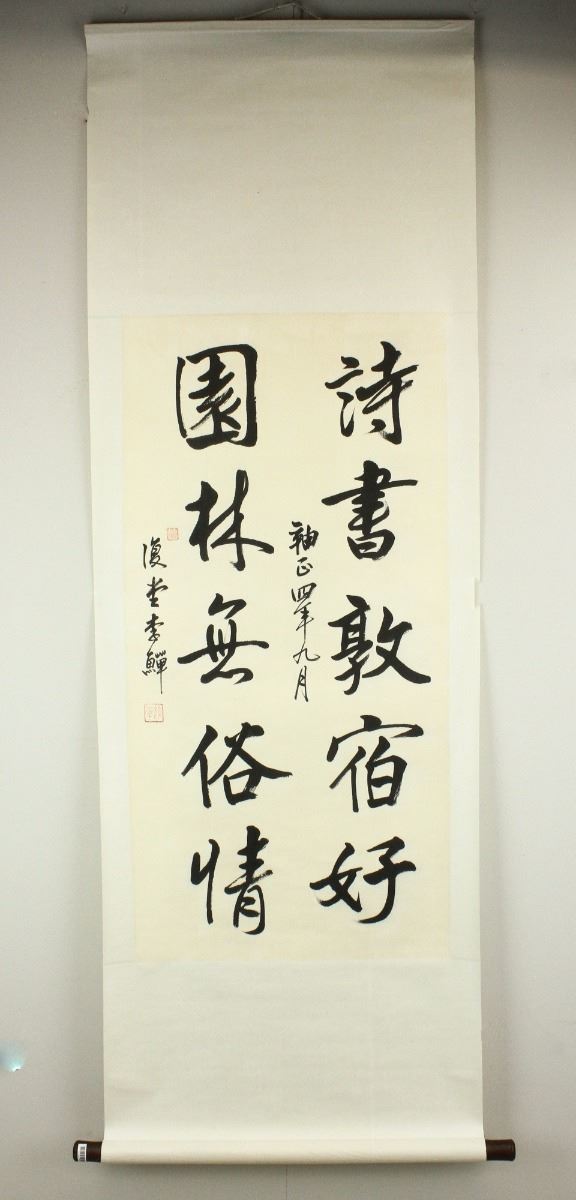 詩書敦宿好
雍正四年九月
園林無俗情
復堂李鱓